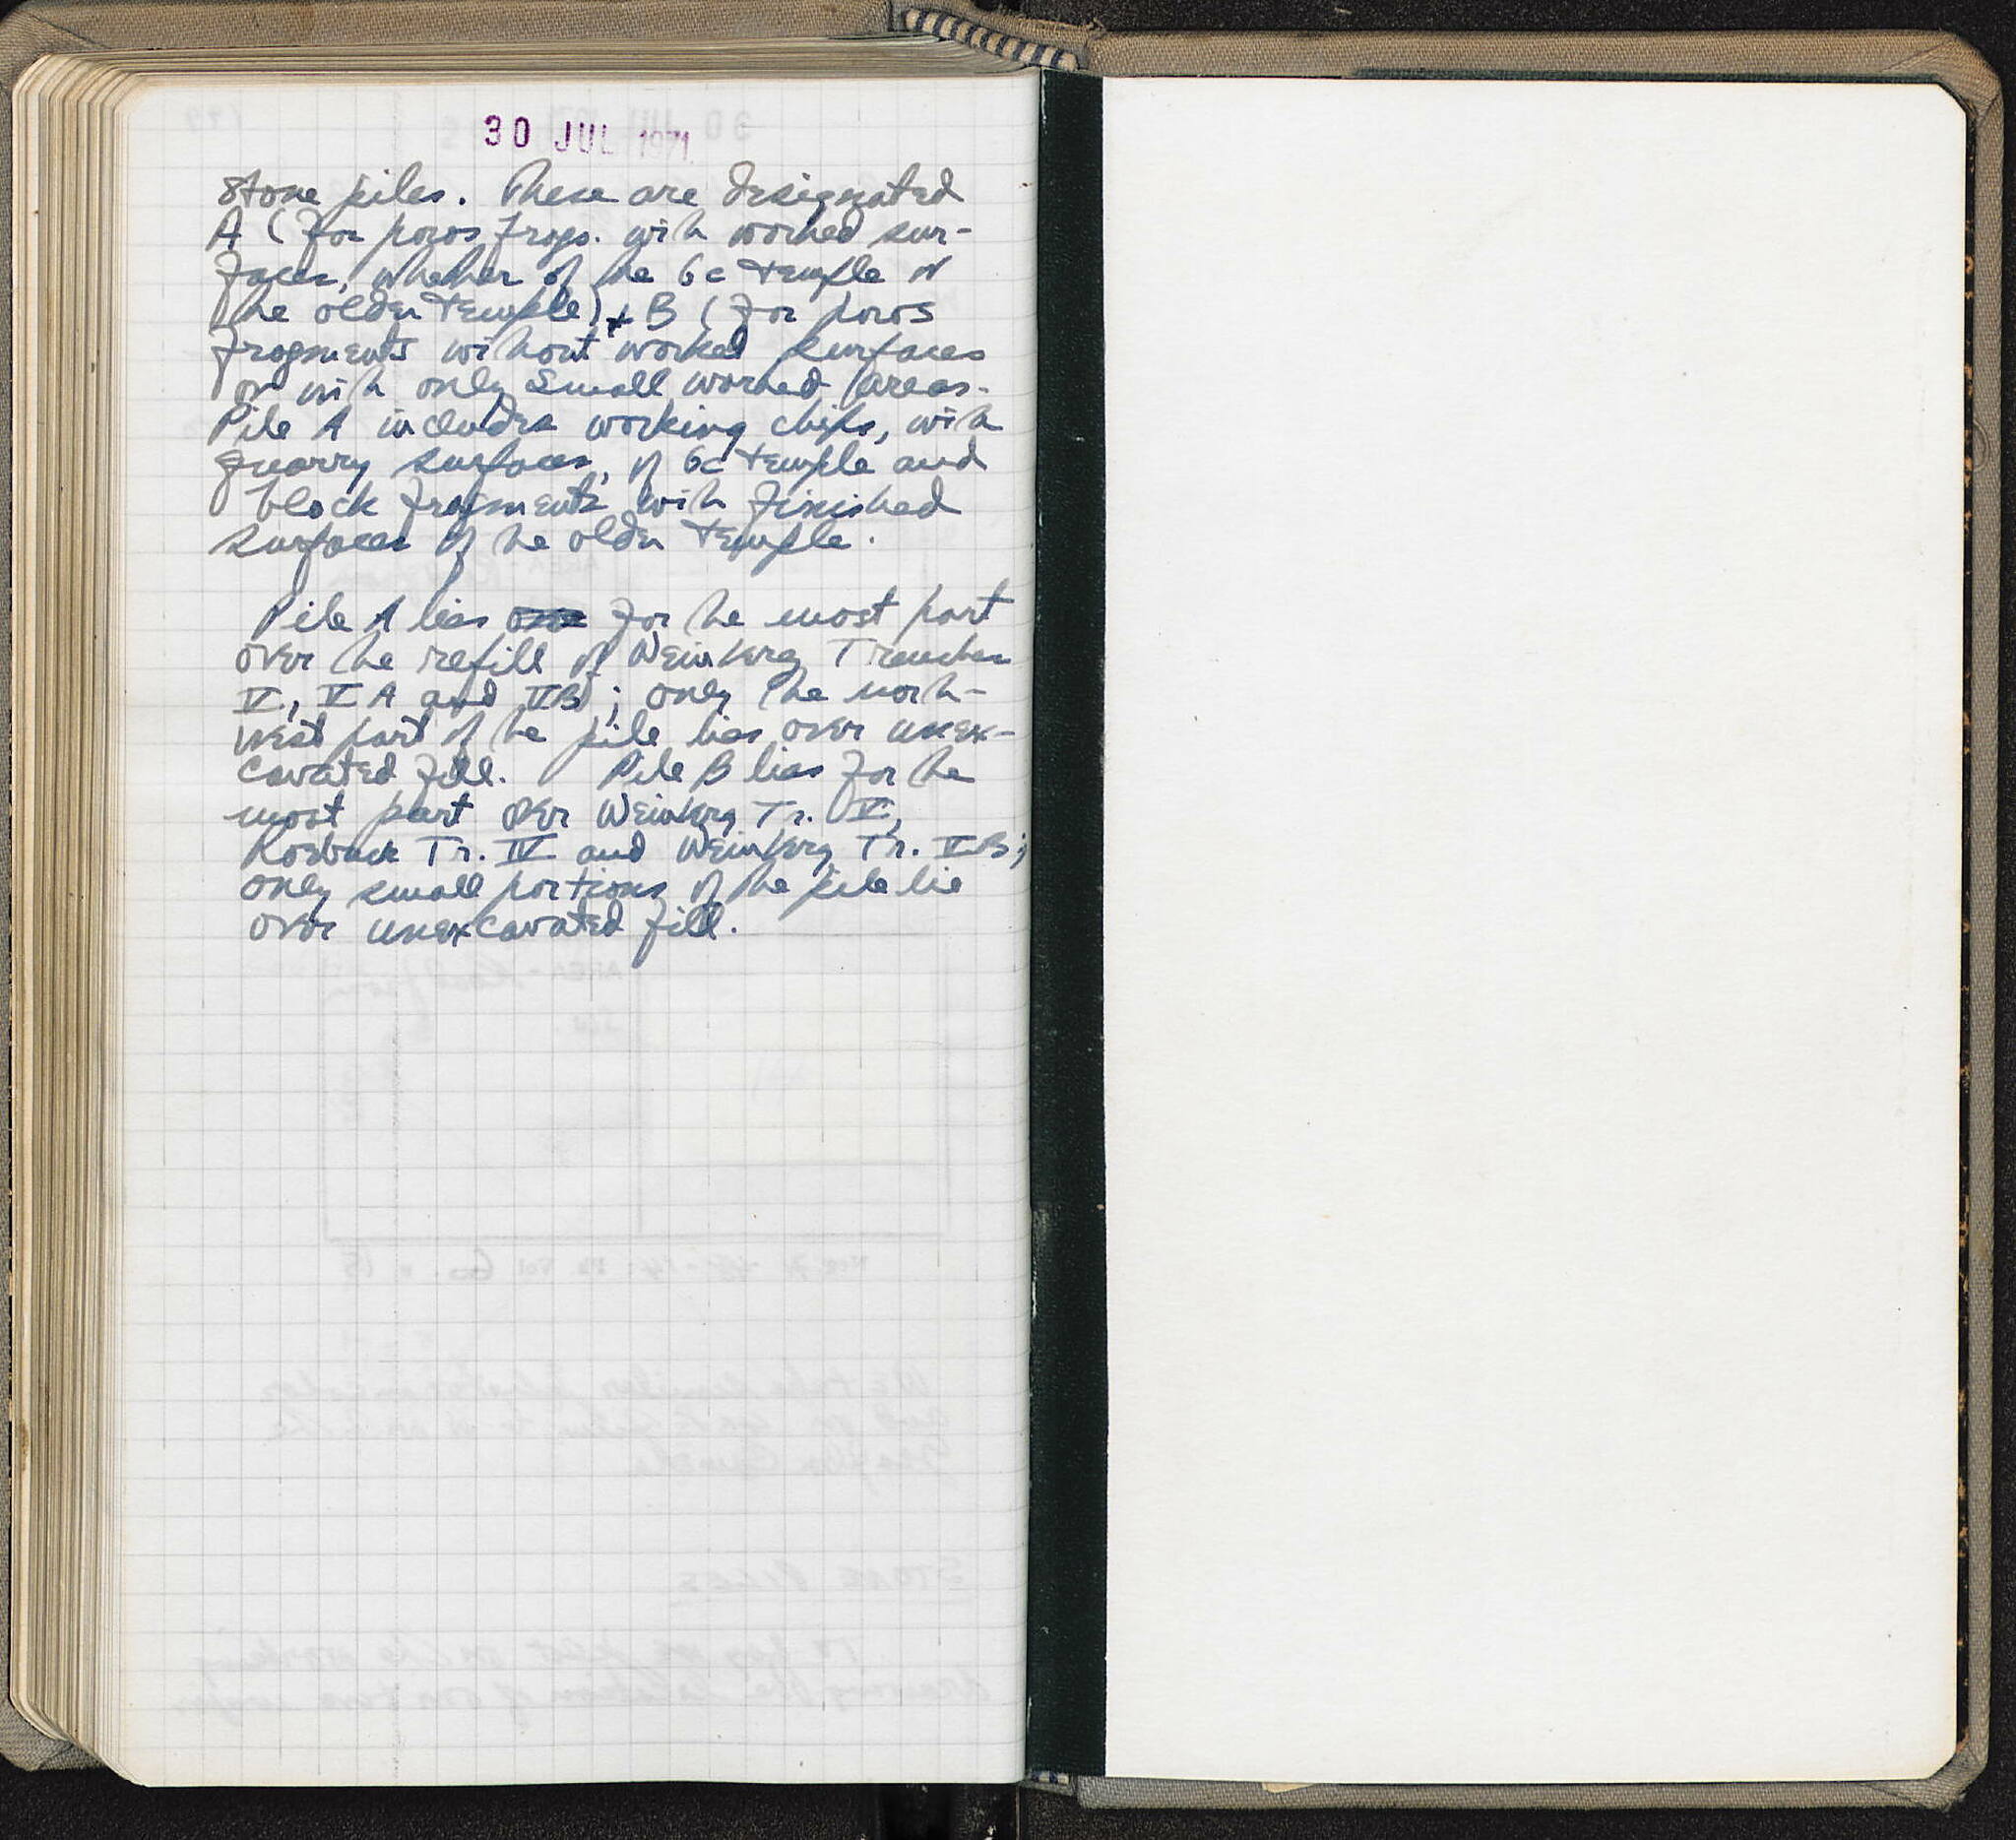 30 JUL 1971
Stone piles. These are designated
A (for poros frags. with worked sur-
faces, whether of the 6c temple or
the older temple) + B (for poros
fragments without worked surfaces
or with only small worked areas.
Pile A includes working chips, with
quarry surfaces, of 6c temple and
block fragments with finished
surfaces of the older temple.
Pile A lies for the most part
over the refill of Weinberg Trenches
V, V A and II B; only the north-
west part of the pile lies over unex-
cavated fill. Pile B lies for the
most part over Weinberg Tr. V,
Roebuck Tr. IV and Weinberg Tr. II B;
only small portions of the pile lie
over unexcavated fill.